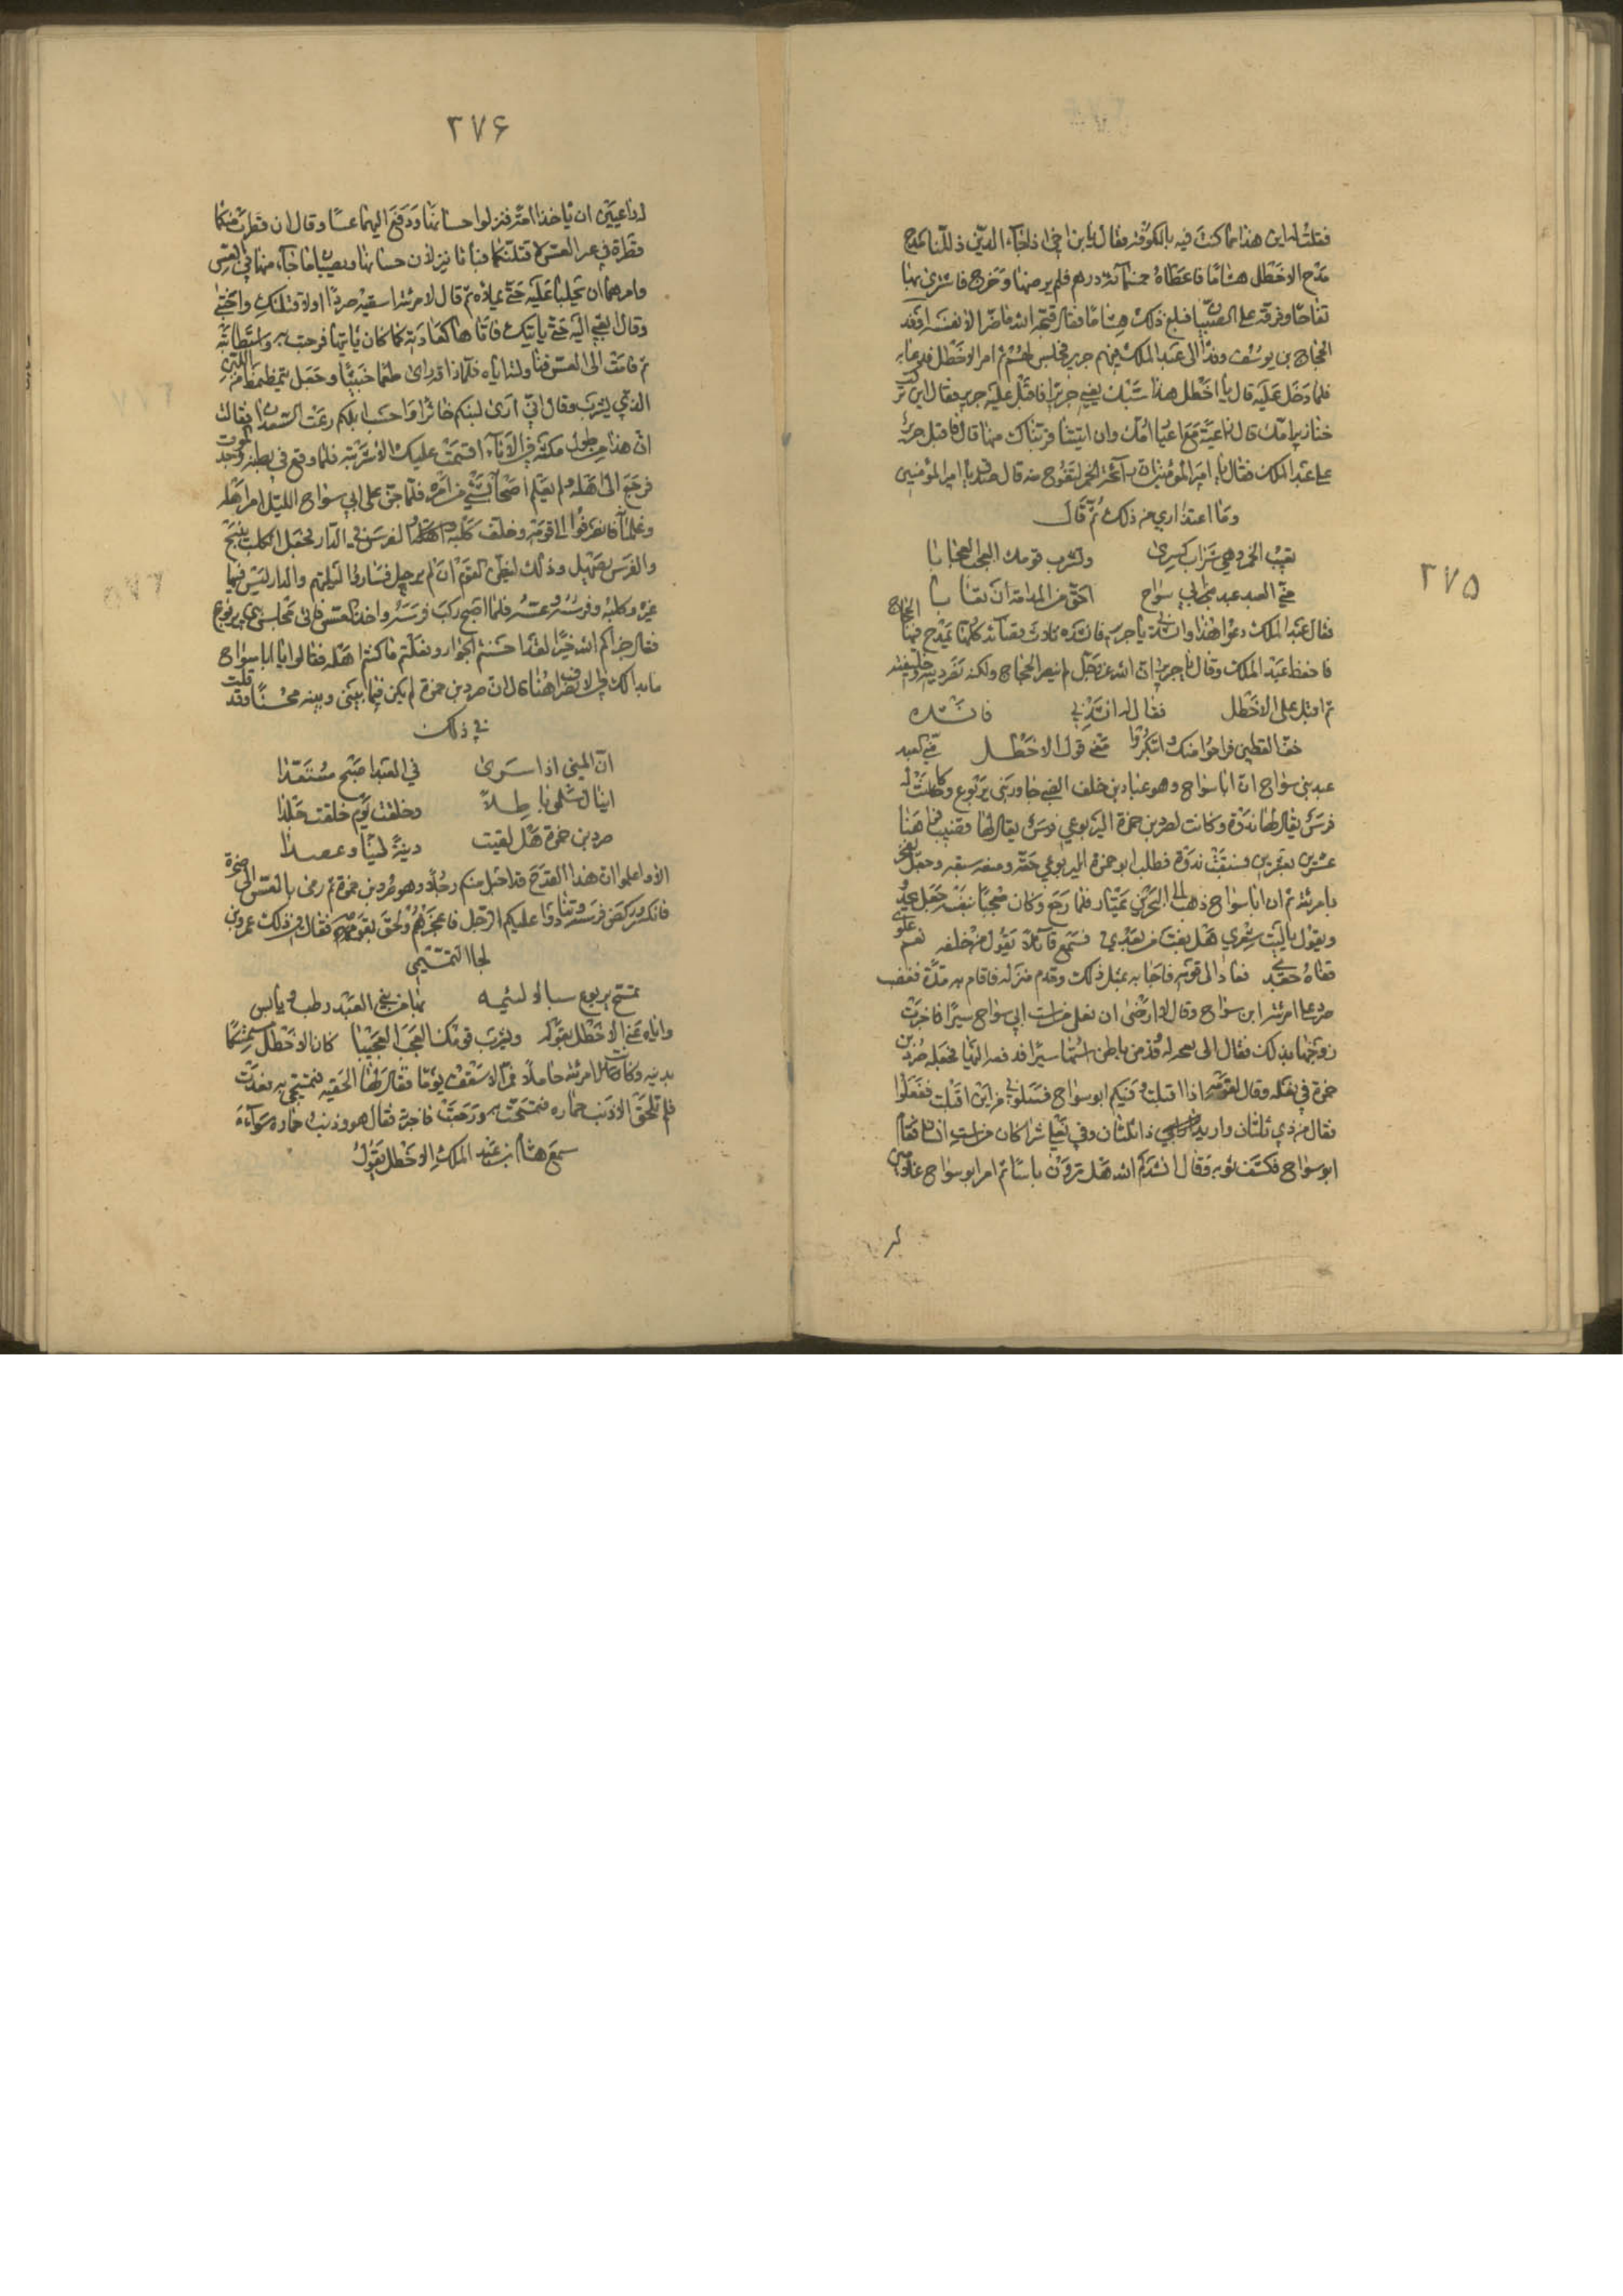 ٢٧٥
فقلت له اين هذا مما كنت فيه بالكوفة فقال يا بن اخي اذا جاء الدين ذللنا مدح
مدح الاخطل هشاما فاعطاه خمسمائة درهم فلم يرضها وخرج فاشترى بها
تفاحا وفرقه على الصبيان فبلغ ذلك هشاما فقال قبحه الله ما ضر الا نفسه اوفد
الحجاج بن يوسف وفدا الى عبد الملك فيهم جرير فجلس لهم ثم امر الاخطل فدعا به
فلما دخل عليه قال يا اخطل هذا سبك يعني جريرا فاقبل عليه جرير فقال اين تركت
خنازير امك قال راعية مع اعيار امك وان اتيتنا قريناك منها قال فاقبل جرير
على عبد الملك فقال يا امير المؤمنين ان رائحة الخمر لتفوح منه قال صدق يا امير المؤمنين
وما اعتذاري من ذلك ثم قال
تعيب الخمر وهي شراب كسرى ويشرب قومك العجب العجابا
مني العبد عبد ابي سواج احق من المدامة ان تعابا
فقال عبد الملك دعوا هذا وانشدني يا جرير فانشده ثلاث قصائد كلها يمدح فيها الحجاج
فاحفظ عبد الملك وقال يا جرير ان الله عز وجل لم ينصر الحجاج ولكنه نصر دينه وخليفته
ثم اقبل على الاخطل فقال له انشدني فانشده
خف القطين فراحوا منك وابتكروا معنى قول الاخطل مني العبد
عبد بني سواج ان ابا سواج وهو عباد بن خلف الضبي جاور بني يربوع وكانت له
فرس يقال لها ندوة وكانت لصرد بن حمزة اليربوعي فرس يقال لها قضيب فراهنا
عشرين بعشرين فسبقت ندوة فطلب ابو حمزة اليربوعي حقه ومنعه سبقه وجعل يفجر
بامرئته ثم ان ابا سواج ذهب الى البحرين يمتار فلما رجع وكان معجبا بنفسه جعل يحدو
ويقول يا ليت شعري هل بغت من بعدي فسمع قائلا يقول من خلفه نعم
قفاه جعد فعاد الى قوله فاجابه بمثل ذلك وقدم منزله فاقام به مدة فغضب
صرد على امرئة ابن سواج وقال لا ارضى ان تقد من است ابي سواج سيرا فاخبرت
زوجها بذلك فقال الى نعجة له فقد من باطن استها سيرا فدفعه اليها فجعله صرد بن
حمزة في نعله وقال لقومه اذا اقبلت وفيكم ابو سواج فسلوني من اين اقبلت ففعلوا
فقال من ذي بليان واريد ذا بليان وفي نعلي شراكان من است انسان فقام
ابو سواج فكشف ثوبه وقال انشدكم الله هل ترون باسا ثم امر ابو سواج غلامين
٢٧۶
له راعيين ان ياخذا امة فنزلوا حسا بها ودفع اليهما عسا وقال ان قطرت منكما
قطرة في غير العس لاقتلنكما فباتا
وامرهما ان يحلبا عليه حتى يملاه ثم قال لامرئته اسقيه صردا اولا قتلتك واختبى
وقال ابعثي اليه حتى ياتيك فاتاها كعادته كما كان ياتيها فرحبت به واستبطاته
ثم قامت الى العس فناولته اياه فلما ذاقه راى طعما خبيثا وجعل يتمطق من اللبن
الذي يشرب وقال اني ارى لبنكم خاثرا احسب ابلكم رعت السعدان فقالت
ان هذا من طول مكثه في الاناء اقسمت عليك الا شربته فلما وقع في بطنه وجد الموت
فرجع الى اهله ولم يعلم اصحابه بشيء من امره فلما جن على ابي سواج الليل امر اهله
وغلمانه فانصرفوا الى قومه وخلف كلبه والفرس في الدار فجعل الكلب ينبح
والفرس يصهل وذلك ليظن القوم ان لم يرحل فساروا ليلتهم والدار ليس فيها
غيره وكلبه وفرسه وعسه فلما اصبح ركب فرسه واخذ العس فاتى مجلس بني يربوع
فقال جزاكم الله خيرا لقد احسنتم الجوار وفعلتم ما كنتم اهله فقالوا يا ابا سواج
ما بدا لك في الانصراف عنا قال ان صرد بن حمزة لم يكن فيما بيني وبينه محسنا وقد قلت
في ذلك
ان المني اذا سرى في العبد اصبح مسمغدا
اتنال سلمى باطلا وخلقت يوم خلقت جلدا
صرد بن حمزة هل لقيت
الا واعلموا ان هذا القدح قد احبل منكم رجلا وهو صرد بن حمزة ثم رمى بالعس الى صخرة
فانكسر وركض فرسه وتنادوا عليكم الرجل فاعجزهم ولحق بقومه فقال في ذلك عمر بن
لجا التميمي
تمسح يربوع سبالا لئيمة بها من مني العبد رطب ويابس
واياه عنى الاخطل بقوله ويشرب قومك العجب العجيبا كان الاخطل متمسكا
بدينه وكانت امرئته حاملا فمر الاسقف يوما فقال لها الحقيه فتمسحي به فعدت
فلم تلحق الا ذنب حماره فتمسحت به ورجعت فاخبرته فقال هو وذنب حماره سواء
سمع هشام بن عبد الملك الاخطل يقول